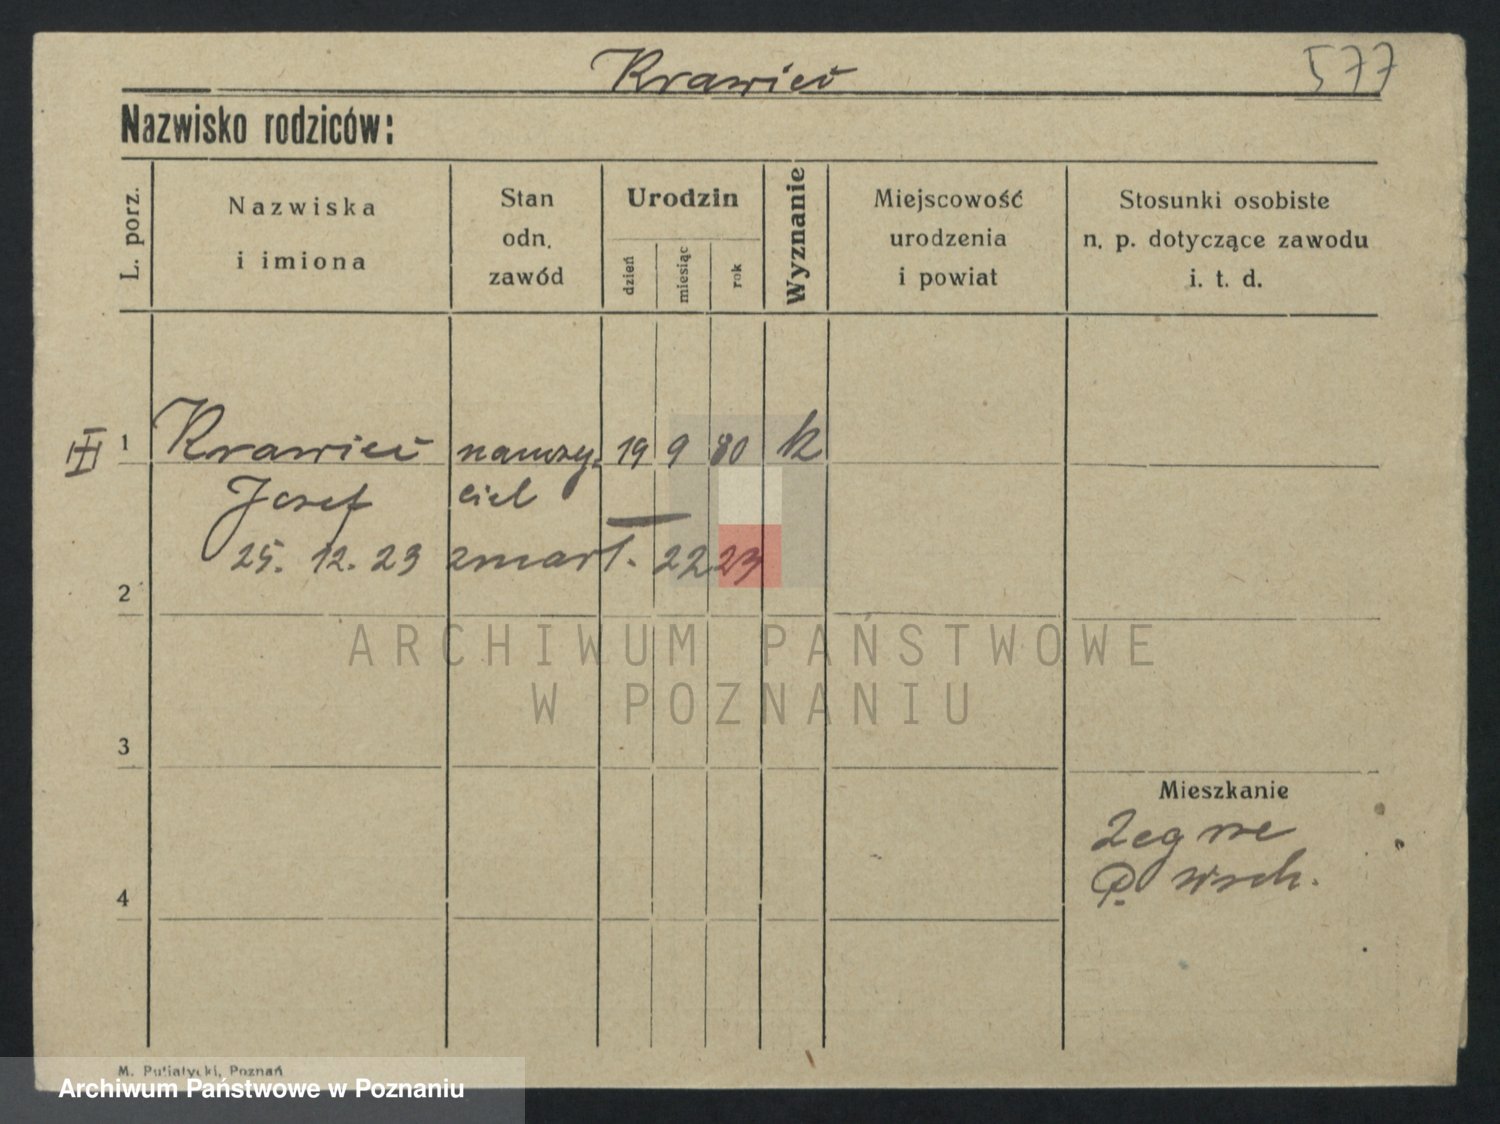 Krawieć
577
Nazwisko rodziców:
L. porz.
Nazwiska
i imiona
Stan
odn.
zawód
Urodzin
dzień
miesiąc
rok
Wyznanie
Miejscowość
urodzenia
i powiat
Stosunki osobiste
n. p. dotyczące zawodu
i. t. d.
III 1 Krawieć nauczy- 19 9 80 k
Josef ciel
25. 12. 23 zmarł. 22 23
2
ARCHIWUM PAŃSTWOWE
W POZNANIU
3
Mieszkanie
Zegrze
P. wsch.
4
M. Putiatycki, Poznań
Archiwum Państwowe w Poznaniu